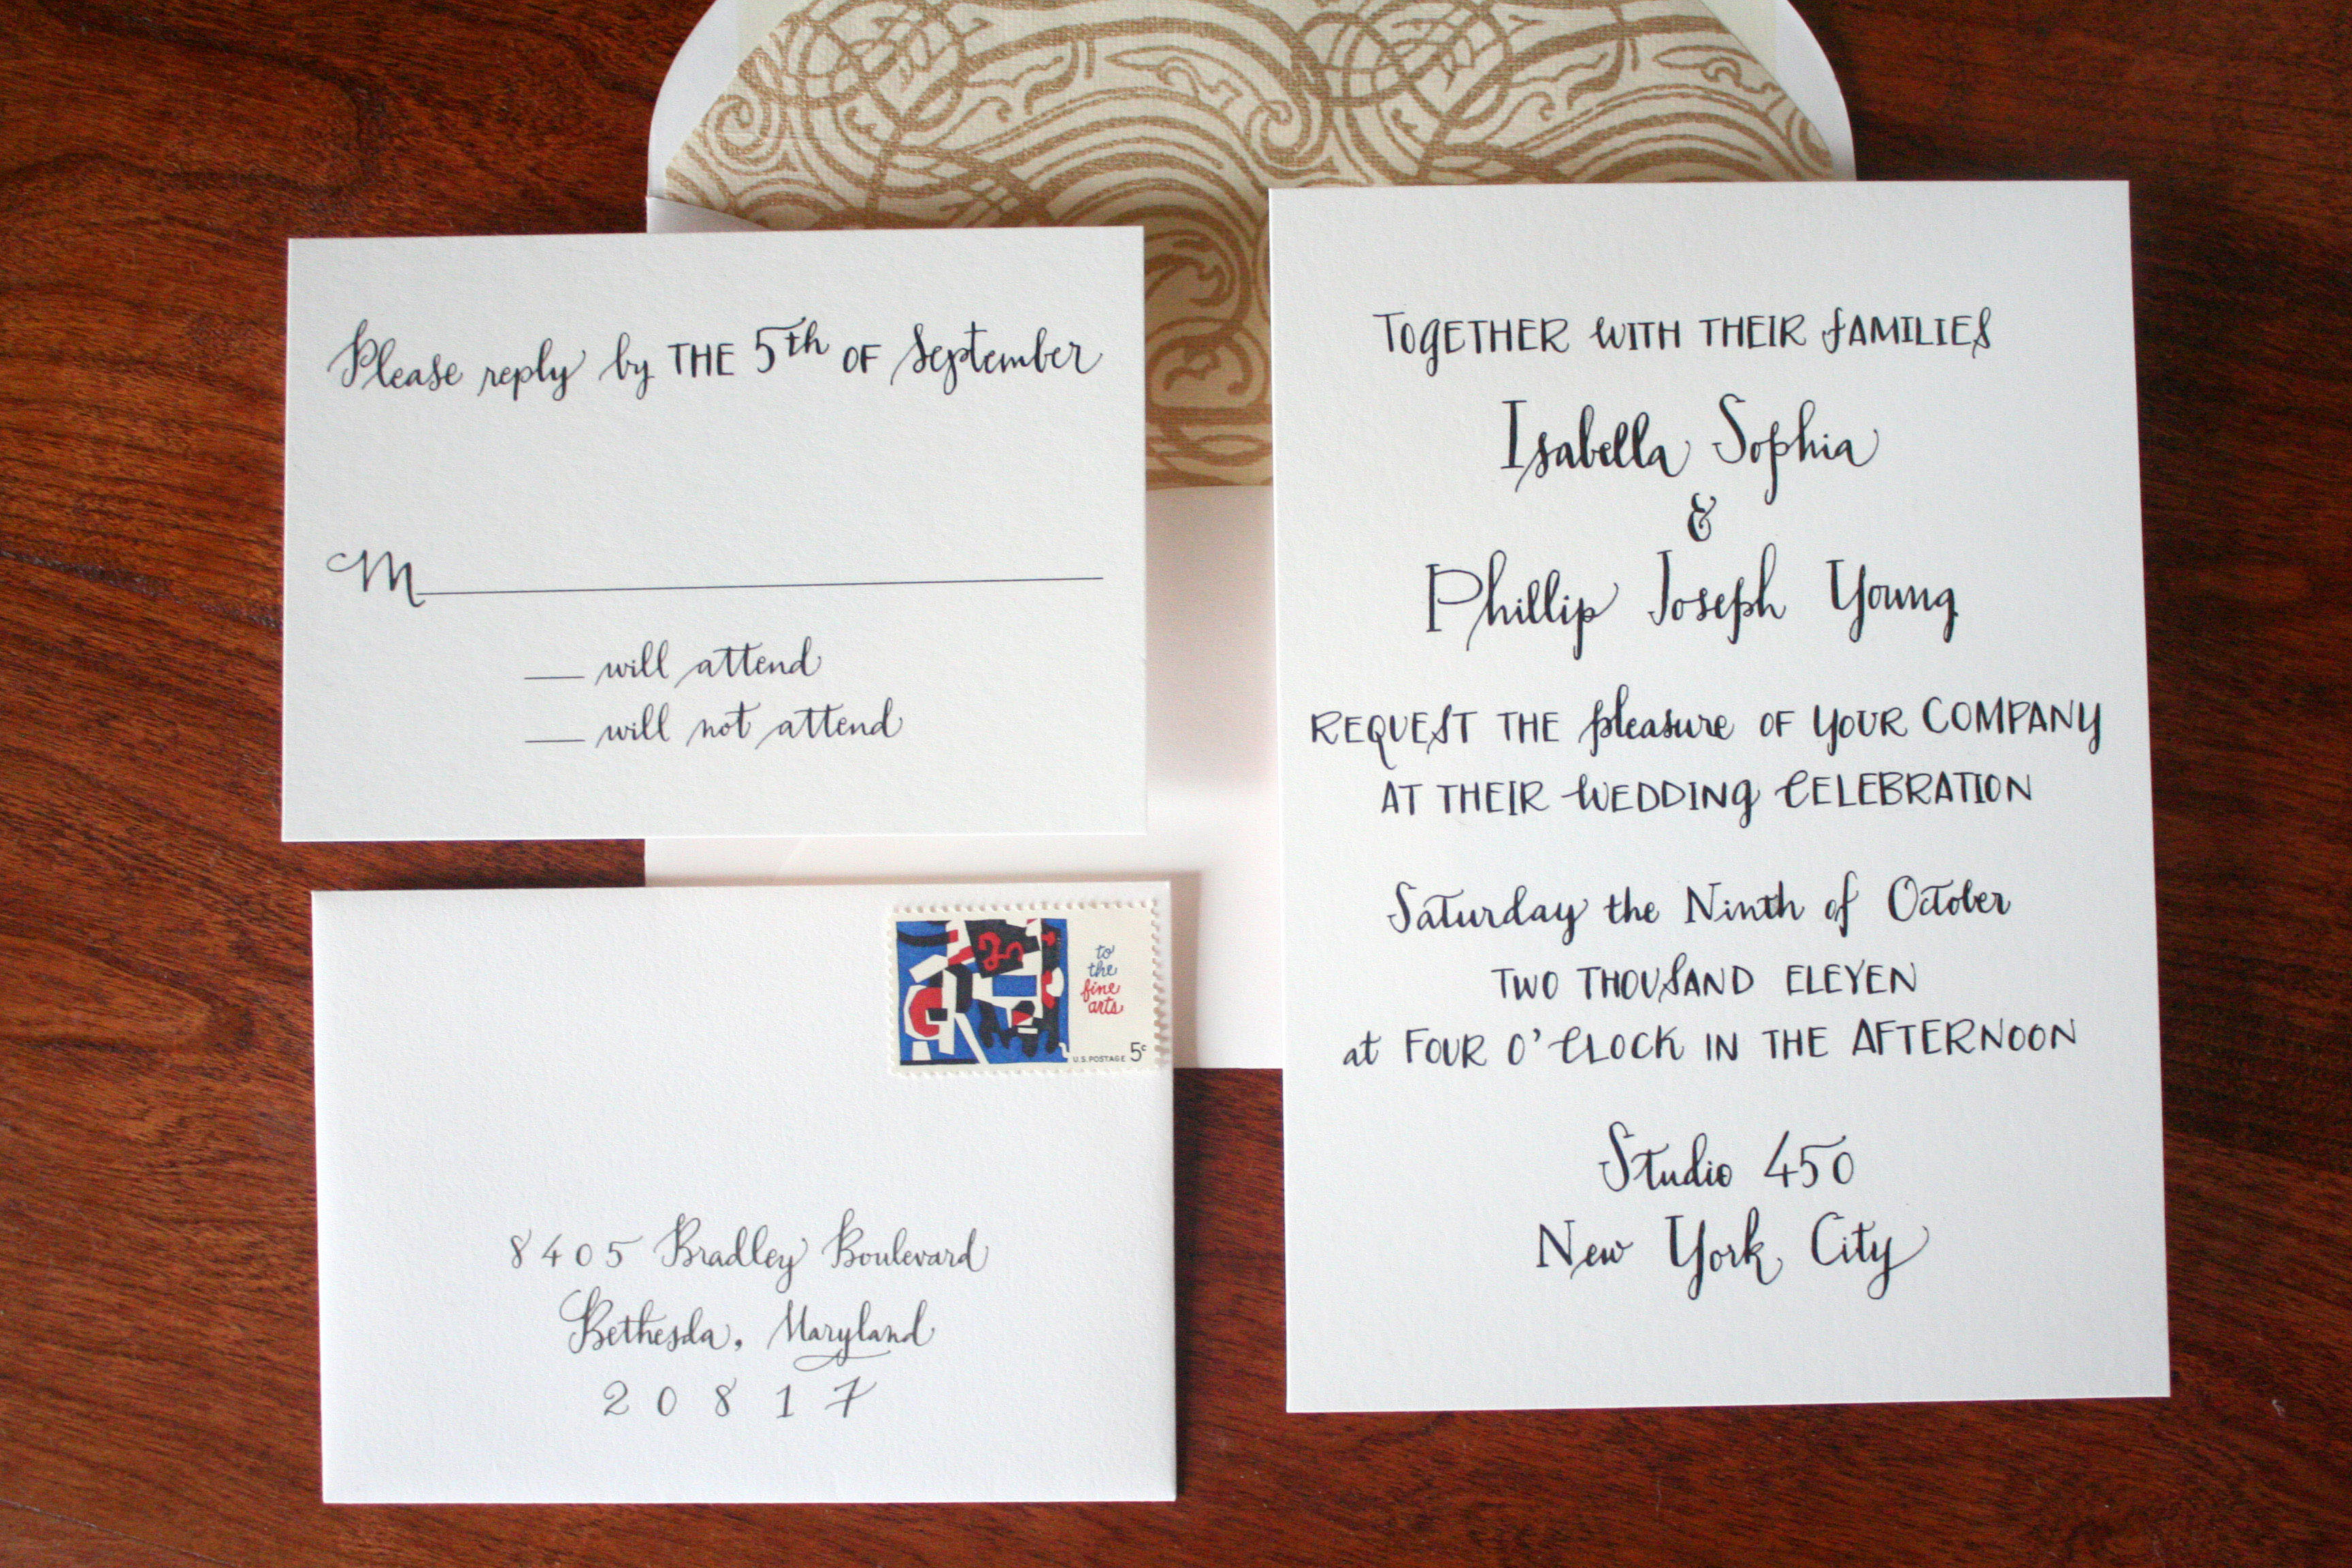 Please reply by THE 5th OF September
M
will attend
will not attend
to
the
fine
arts
U.S. POSTAGE 5c
8405 Bradley Boulevard
Bethesda, Maryland
20817
TOGETHER WITH THEIR FAMILIES
Isabella Sophia
&
Phillip Joseph Young
REQUEST THE pleasure OF YOUR COMPANY
AT THEIR WEDDING CELEBRATION
Saturday the Ninth of October
TWO THOUSAND ELEVEN
at FOUR O'CLOCK IN THE AFTERNOON
Studio 450
New York City